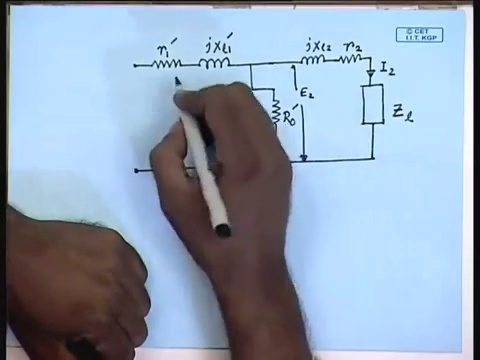 © CET
I.I.T. KGP
r₁′ jxl₁′ jxl₂ r₂
I₂
E₂
R₀′
Zl